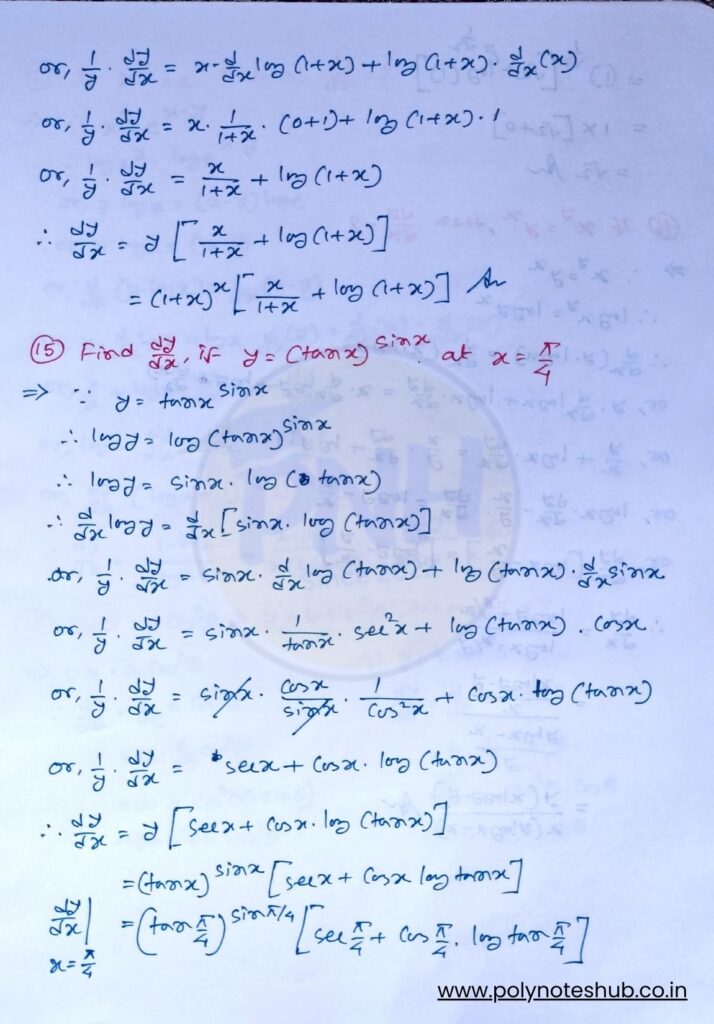 or, 1/y · dy/dx = x · d/dx log (1+x) + log (1+x) · d/dx (x)
or, 1/y · dy/dx = x · 1/1+x · (0+1) + log (1+x) · 1
or, 1/y · dy/dx = x/1+x + log (1+x)
∴ dy/dx = y [ x/1+x + log (1+x) ]
= (1+x)^x [ x/1+x + log (1+x) ]
(15) Find dy/dx, if y = (tanx)^sinx at x = π/4
⇒ ∵ y = tanx^sinx
∴ logy = log (tanx)^sinx
∴ logy = sinx · log (tanx)
∴ d/dx logy = d/dx [sinx · log (tanx)]
or, 1/y · dy/dx = sinx · d/dx log (tanx) + log (tanx) · d/dx sinx
or, 1/y · dy/dx = sinx · 1/tanx · sec²x + log (tanx) . cosx
or, 1/y · dy/dx = sinx · cosx/sinx · 1/cos²x + cosx · log (tanx)
or, 1/y · dy/dx = secx + cosx · log (tanx)
∴ dy/dx = y [secx + cosx · log (tanx)]
= (tanx)^sinx [secx + cosx log tanx]
dy/dx | x = π/4 = (tan π/4)^sin π/4 [sec π/4 + cos π/4 . log tan π/4]
PNH
www.polynoteshub.co.in